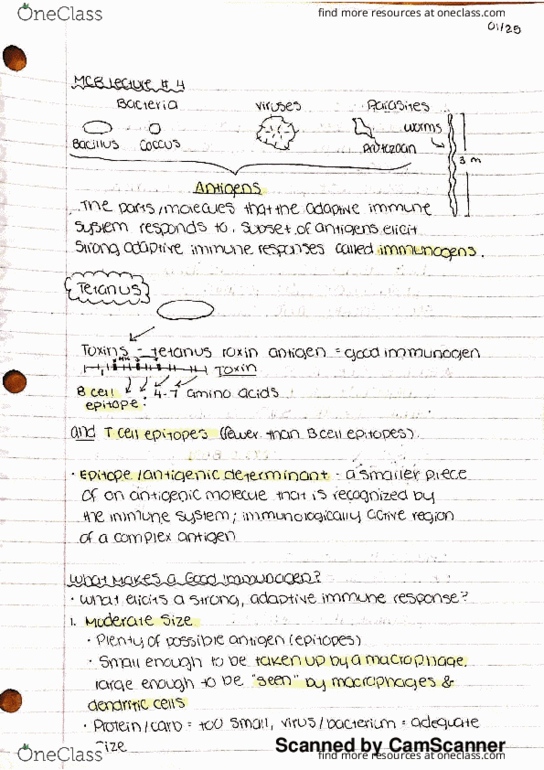 OneClass
find more resources at oneclass.com
01/25
MCB Lecture # 4
Bacteria viruses Parasites
worms
Bacillus coccus Protozoan
3 m
Antigens
The parts/molecules that the adaptive immune
system responds to. Subset of antigens elicit
strong adaptive immune responses called immunogens.
Tetanus
Toxins - tetanus toxin antigen = good immunogen
Toxin
B cell epitope: 4-7 amino acids
and T cell epitopes (fewer than B cell epitopes).
· Epitope/antigenic determinant - a smaller piece
of an antigenic molecule that is recognized by
the immune system; immunologically active region
of a complex antigen
What Makes a Good Immunogen?
· What elicits a strong, adaptive immune response?
1. Moderate Size
· Plenty of possible antigen (epitopes)
· Small enough to be taken up by a macrophage,
large enough to be "seen" by macrophages &
dendritic cells
· Protein/carb = too small, virus/bacterium = adequate
size
Scanned by CamScanner
OneClass
find more resources at oneclass.com